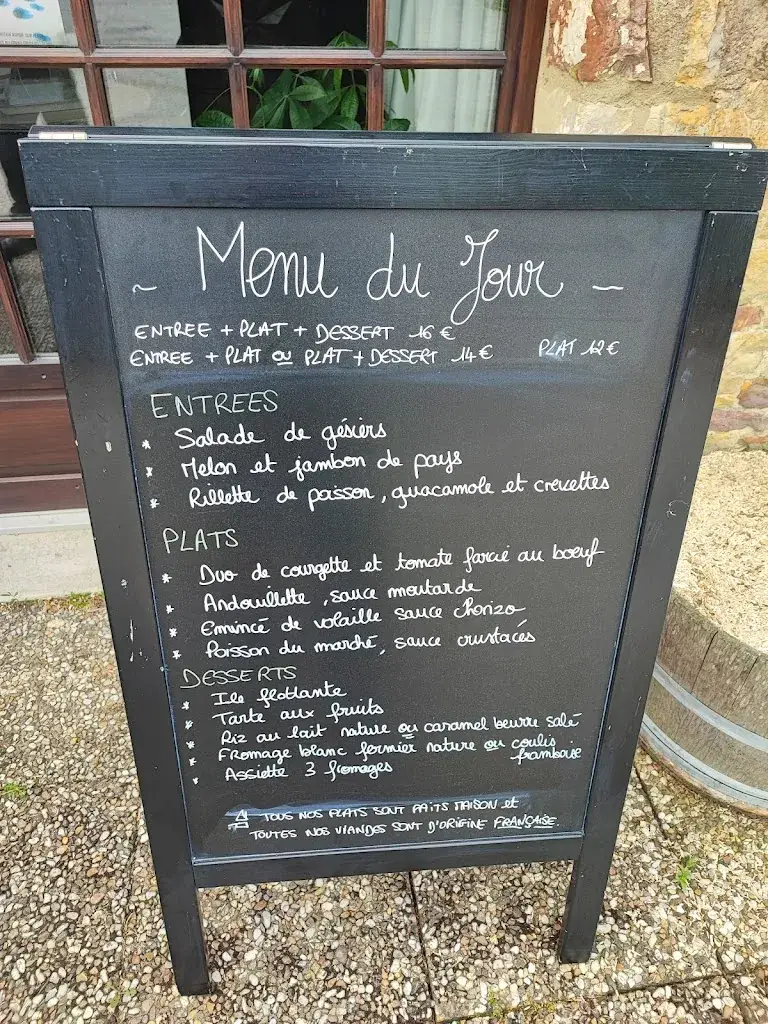 ~ Menu du Jour ~
ENTREE + PLAT + DESSERT 16 €
ENTREE + PLAT OU PLAT + DESSERT 14 € PLAT 12 €
ENTREES
* Salade de gésiers
* Melon et jambon de pays
* Rillette de poisson, guacamole et crevettes
PLATS
* Duo de courgette et tomate farcie au boeuf
* Andouillette, sauce moutarde
* Emincé de volaille sauce chorizo
* Poisson du marché, sauce crustacés
DESSERTS
* Ile flottante
* Tarte aux fruits
* Riz au lait nature ou caramel beurre salé
* Fromage blanc fermier nature ou coulis
framboise
* Assiette 3 fromages
TOUS NOS PLATS SONT FAITS MAISON et
TOUTES NOS VIANDES SONT D'ORIGINE FRANÇAISE.